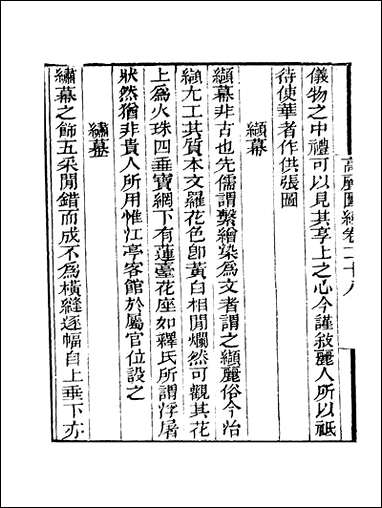 高麗圖經卷二十八
儀物之中禮可以見其享上之心今謹敘麗人所以祗
待使華者作供張圖
纈幕
纈幕非古也先儒謂繫繒染為文者謂之纈麗俗今治
纈尤工其質本文羅花色即黃白相間爛然可觀其花
上為火珠四垂寶網下有蓮臺花座如釋氏所謂浮屠
狀然猶非貴人所用惟江亭客館於屬官位設之
繡幕
繡幕之飾五采間錯而成不為橫縫逐幅自上垂下亦